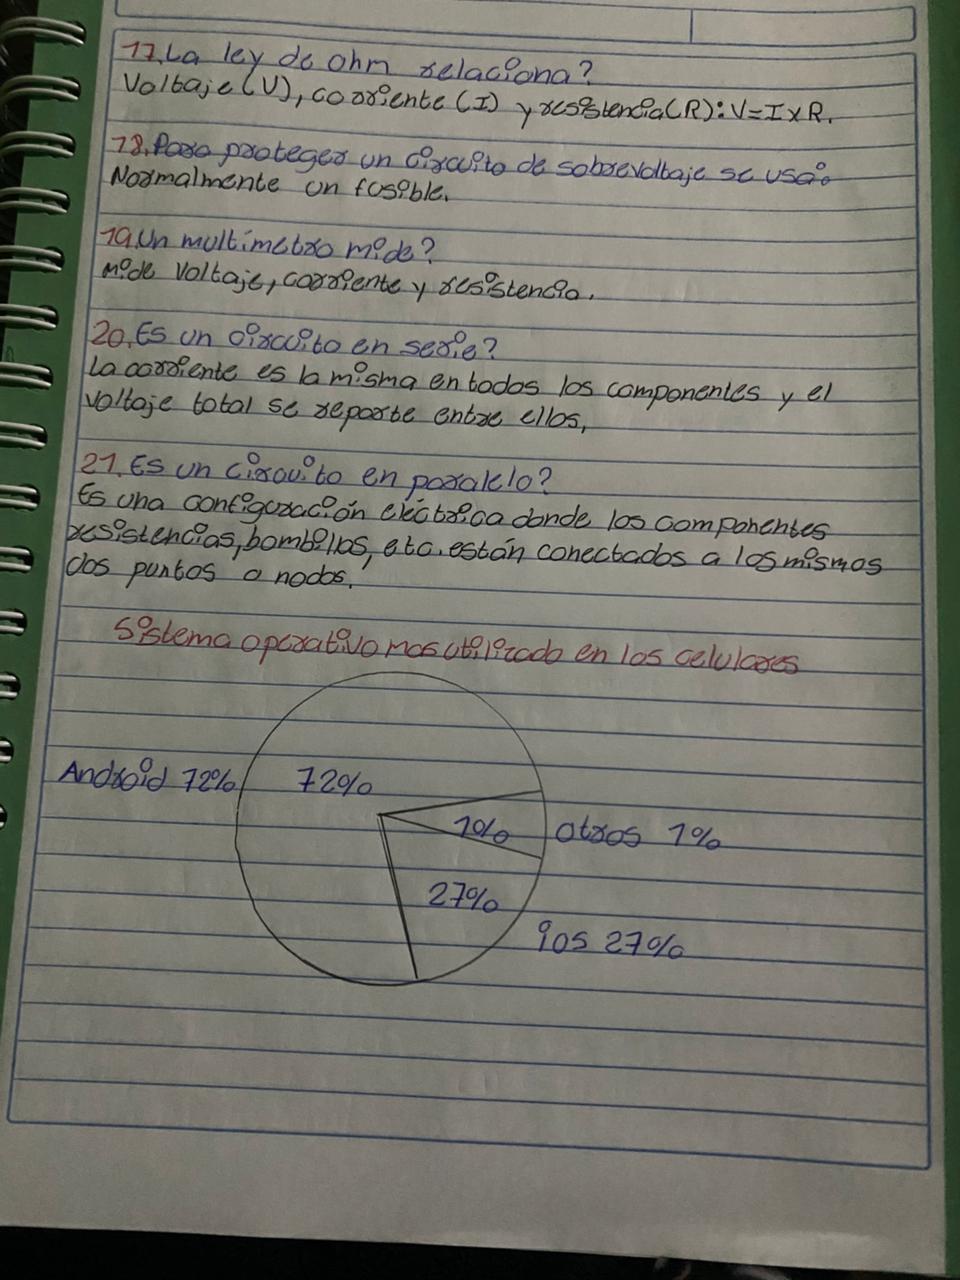 17. La ley de ohm relaciona?
Voltaje (V), corriente (I) y resistencia (R): V=IxR.
18. Para proteger un circuito de sobrevoltaje se usa:
Normalmente un fusible.
19. Un multímetro mide?
mide voltaje, corriente y resistencia.
20. Es un circuito en serie?
La corriente es la misma en todos los componentes y el
voltaje total se reparte entre ellos,
21. Es un circuito en paralelo?
Es una configuración eléctrica donde los componentes
resistencias, bombillos, etc. están conectados a los mismos
dos puntos o nodos.
Sistema operativo mas utilizado en los celulares
Android 72% 72%
1% otros 1%
27%
ios 27%